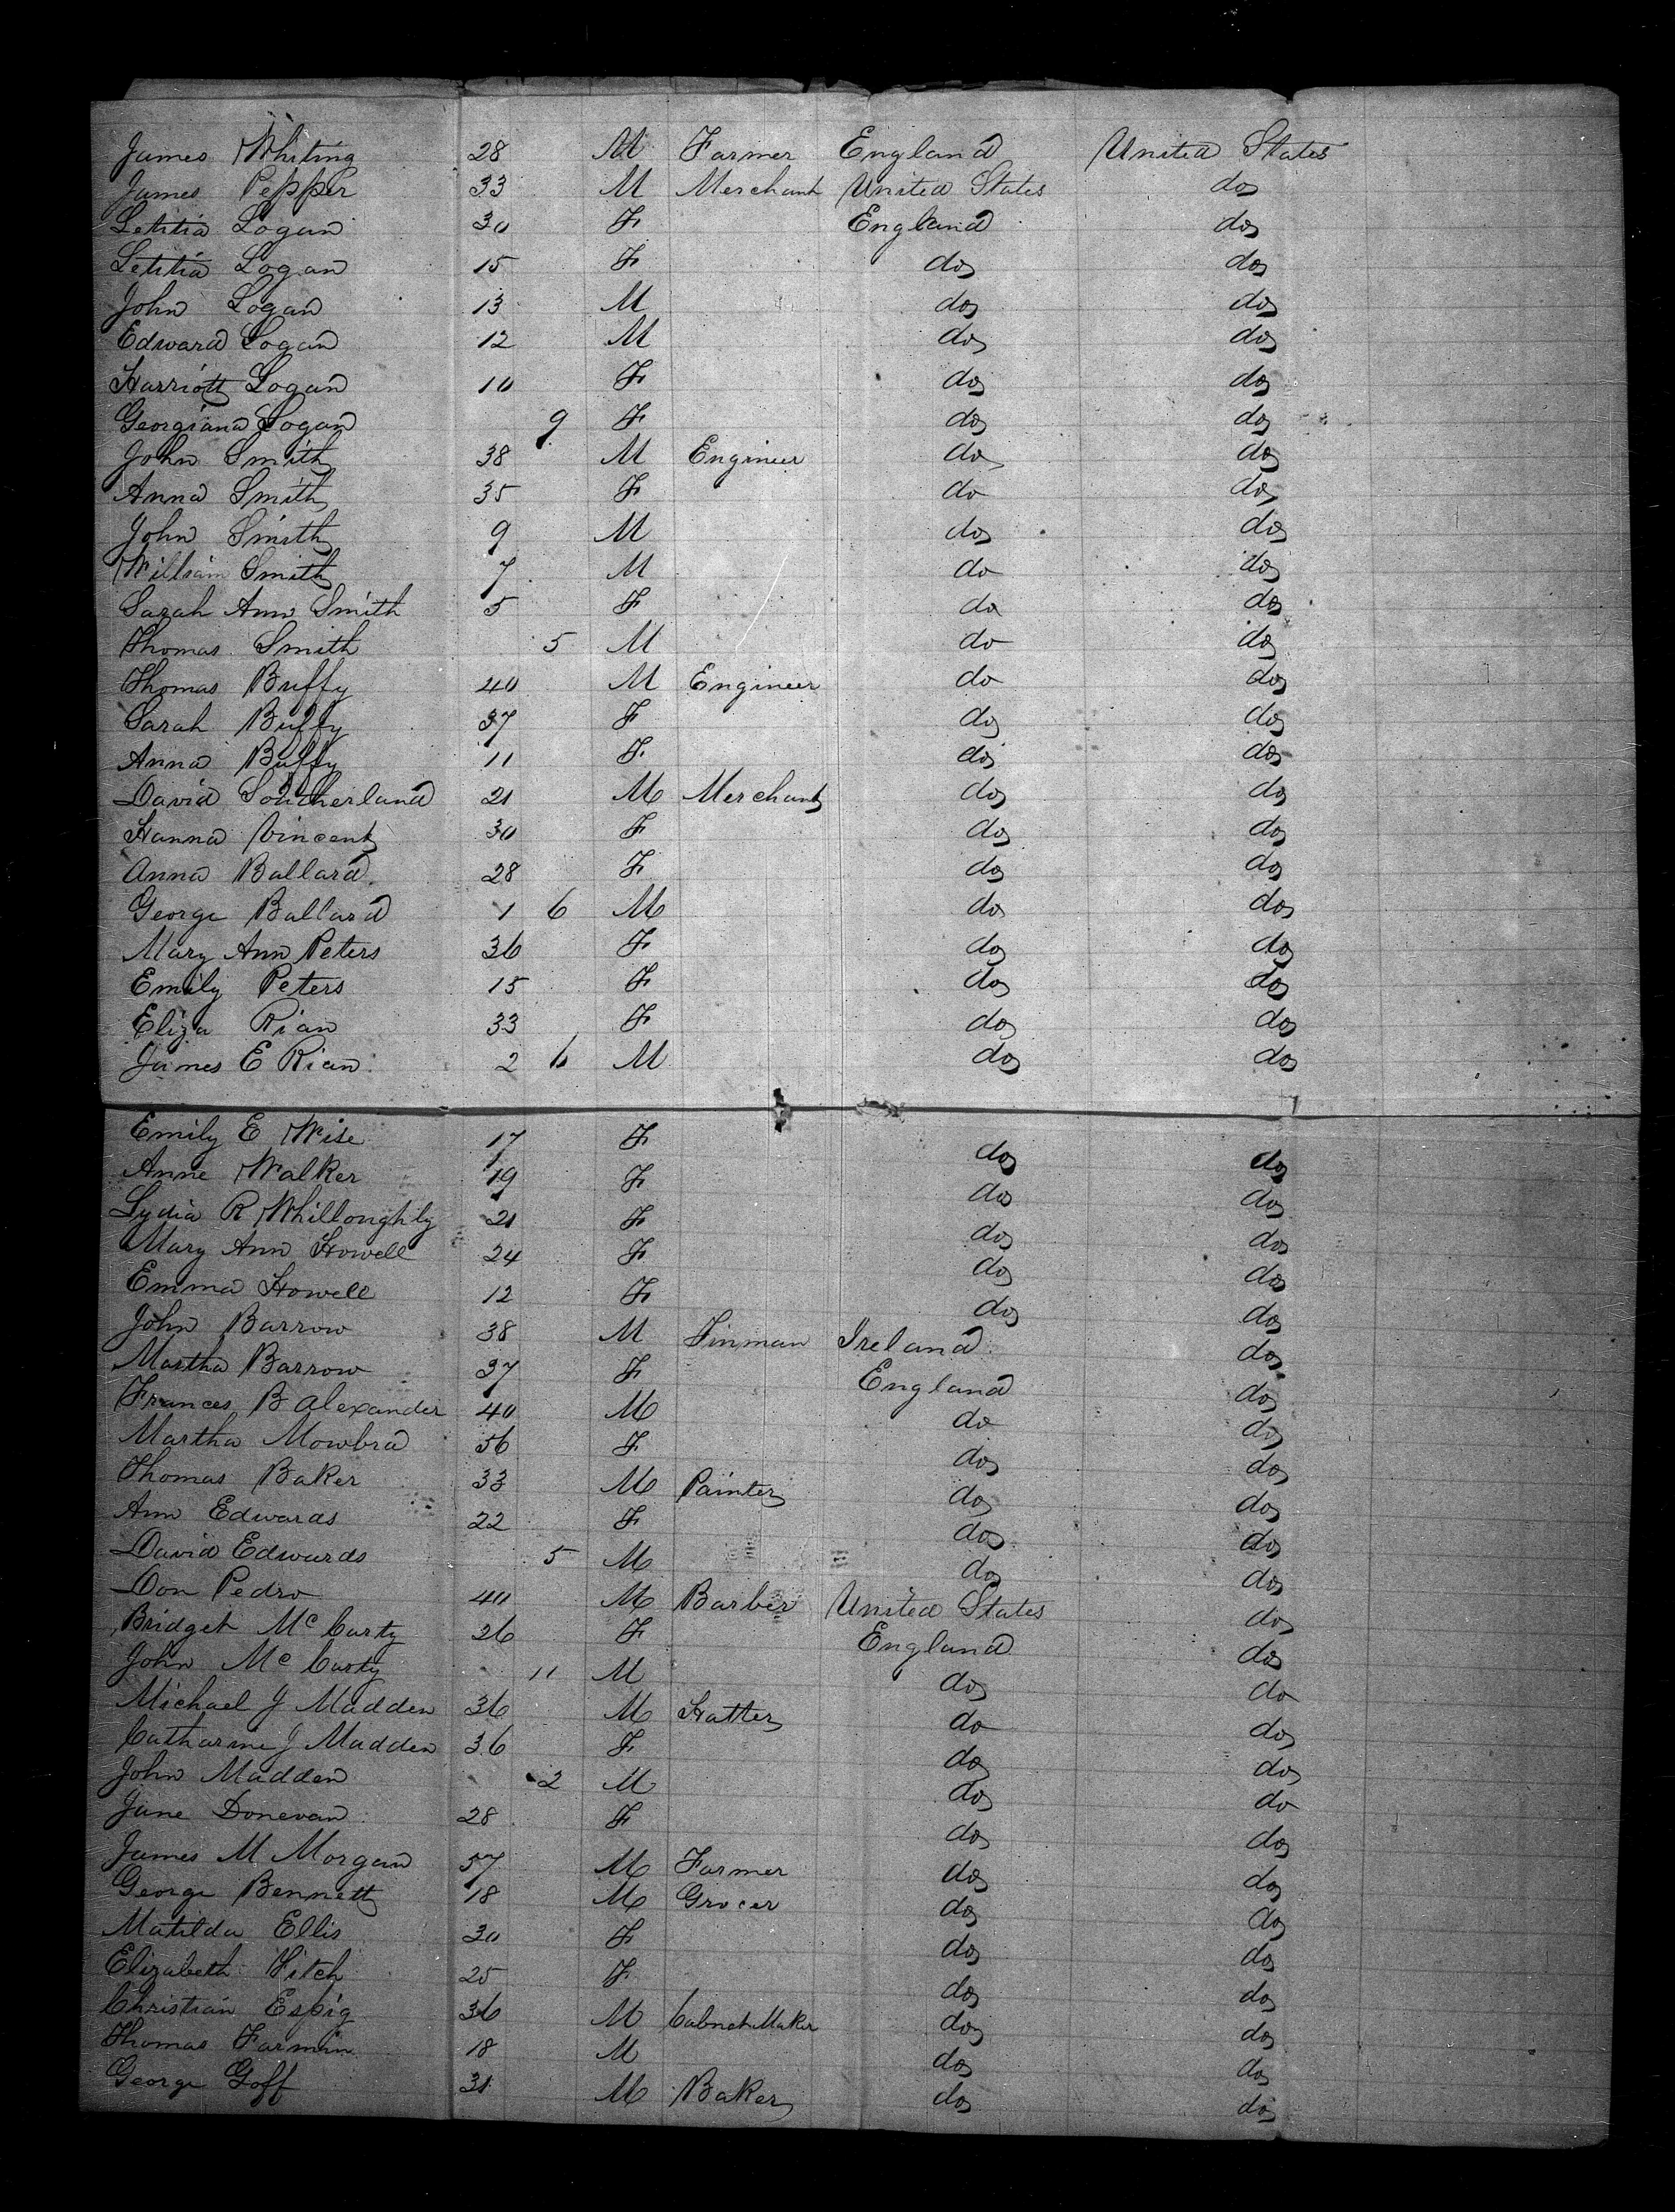 James Whiting 28 M Farmer England United States
James Pepper 33 M Merchant United States do
Letitia Logan 30 F England do
Letitia Logan 15 F do do
John Logan 13 M do do
Edward Logan 12 M do do
Harriott Logan 10 F do do
Georgiana Logan 9 F do do
John Smith 38 M Engineer do do
Anna Smith 35 F do do
John Smith 9 M do do
William Smith 7 M do do
Sarah Ann Smith 5 F do do
Thomas Smith 5 M do do
Thomas Buffy 40 M Engineer do do
Sarah Buffy 37 F do do
Anna Buffy 11 F do do
David Southerland 21 M Merchant do do
Hanna Vincent 30 F do do
Anna Ballard 28 F do do
George Ballard 1 6 M do do
Mary Ann Peters 36 F do do
Emily Peters 15 F do do
Eliza Rian 33 F do do
James E Rian 2 6 M do do
Emily E Wise 17 F do do
Anne Walker 19 F do do
Lydia R Whilloughly 21 F do do
Mary Ann Howell 24 F do do
Emma Howell 12 F do do
John Barrow 38 M Tinman Ireland do
Martha Barrow 37 F England do
Frances B Alexander 40 M do do
Martha Mowbra 56 F do do
Thomas Baker 33 M Painter do do
Ann Edwards 22 F do do
David Edwards 5 M do do
Don Pedro 40 M Barber United States do
Bridget Mc Carty 26 F England do
John Mc Carty 11 M do do
Michael J Madden 36 M Hatter do do
Catharine J Madden 36 F do do
John Madden 2 M do do
Jane Donevan 28 F do do
James M Morgan 57 M Farmer do do
George Bennett 18 M Grocer do do
Matilda Ellis 30 F do do
Elizabeth Hitch 25 F do do
Christian Espig 36 M Cabnet Maker do do
Thomas Farmin 18 M do do
George Goff 31 M Baker do do